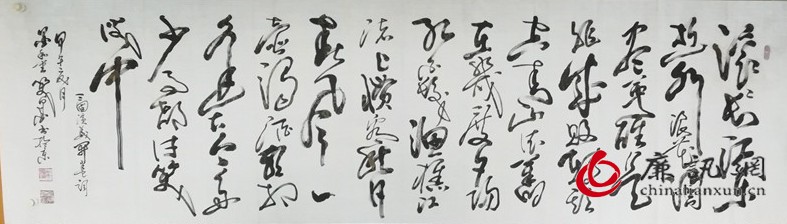 滚滚长江东
逝水浪花淘
尽英雄是非
成败转头
空青山依旧
在几度夕阳
红白发渔樵江
渚上惯看秋月
春风一
壶浊酒喜相
逢古今多
少事都付笑
谈中
三国演义开篇词
甲午
廉訊網
chinalianxun.c